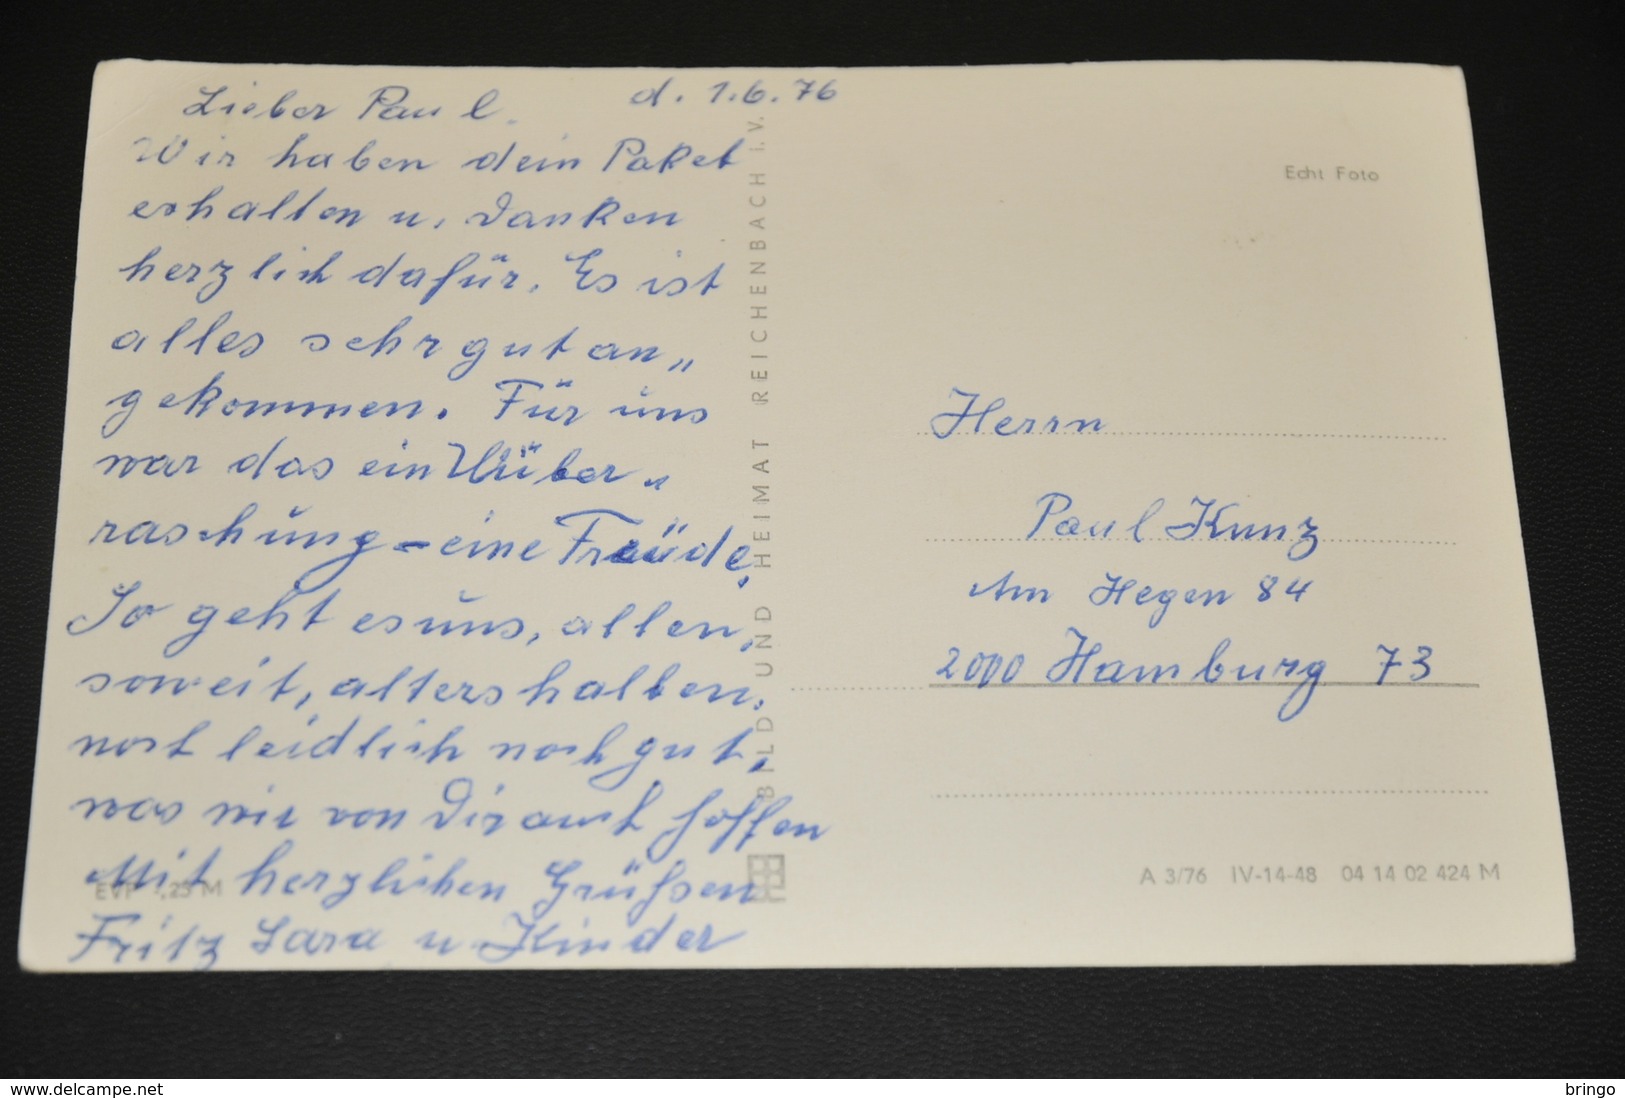 Lieber Paul. d. 1.6.76
Wir haben dein Paket
erhalten u. danken
herzlich dafür. Es ist
alles sehr gut an„
gekommen. Für uns
war das ein Überr„
raschung – eine Freude.
So geht es uns, allen,
soweit, altershalben.
noch leidlich noch gut,
was wir von Dir auch hoffen
Mit herzlichen Grüßen
Fritz Sara u Kinder
EVP -,25 M
BILD UND HEIMAT REICHENBACH i.V.
Echt Foto
Herrn
Paul Kunz
Am Hegen 84
2000 Hamburg 73
A 3/76 IV-14-48 04 14 02 424 M
www.delcampe.net
bringo